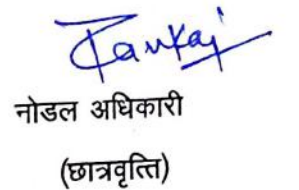 Pankaj
नोडल अधिकारी
(छात्रवृत्ति)